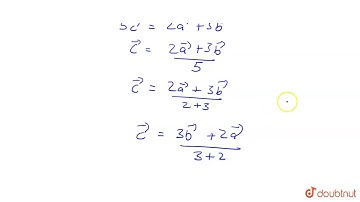 5c⃗ = 2a⃗ + 3b⃗
c⃗ = (2a⃗ + 3b⃗)/5
c⃗ = (2a⃗ + 3b⃗)/(2+3)
c⃗ = (3b⃗ + 2a⃗)/(3+2)
doubtnut